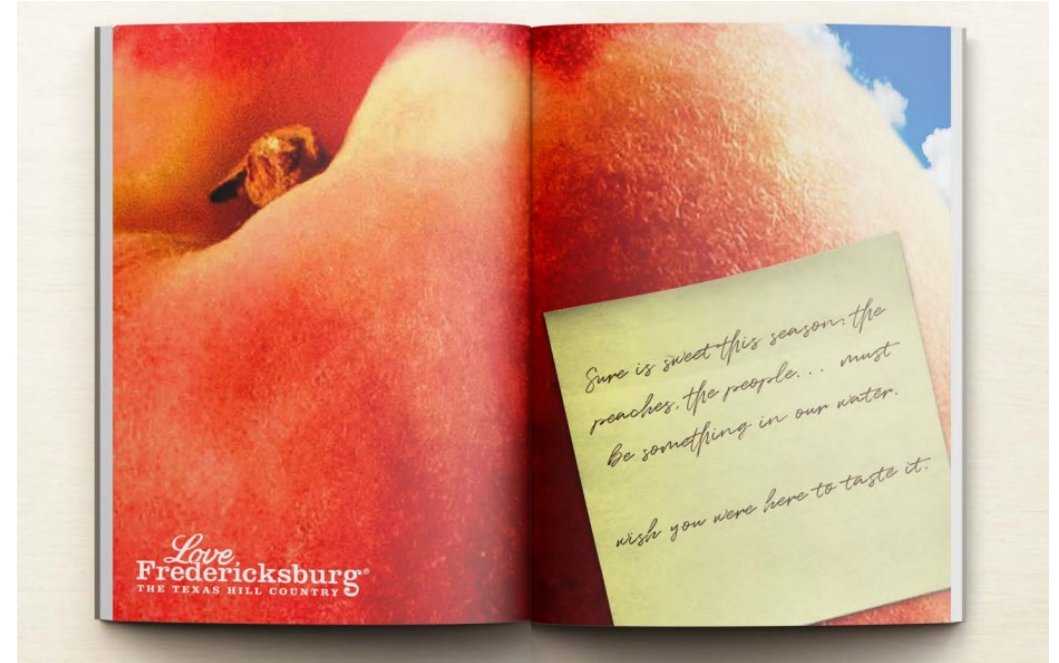 Love
Fredericksburg®
THE TEXAS HILL COUNTRY
Sure is sweet this season, the
peaches, the people... must
be something in our water.
wish you were here to taste it.